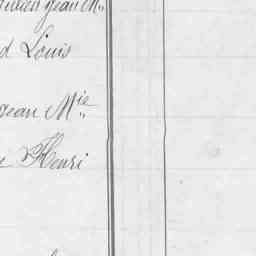 Jean M
d Louis
Jean Mie
Henri